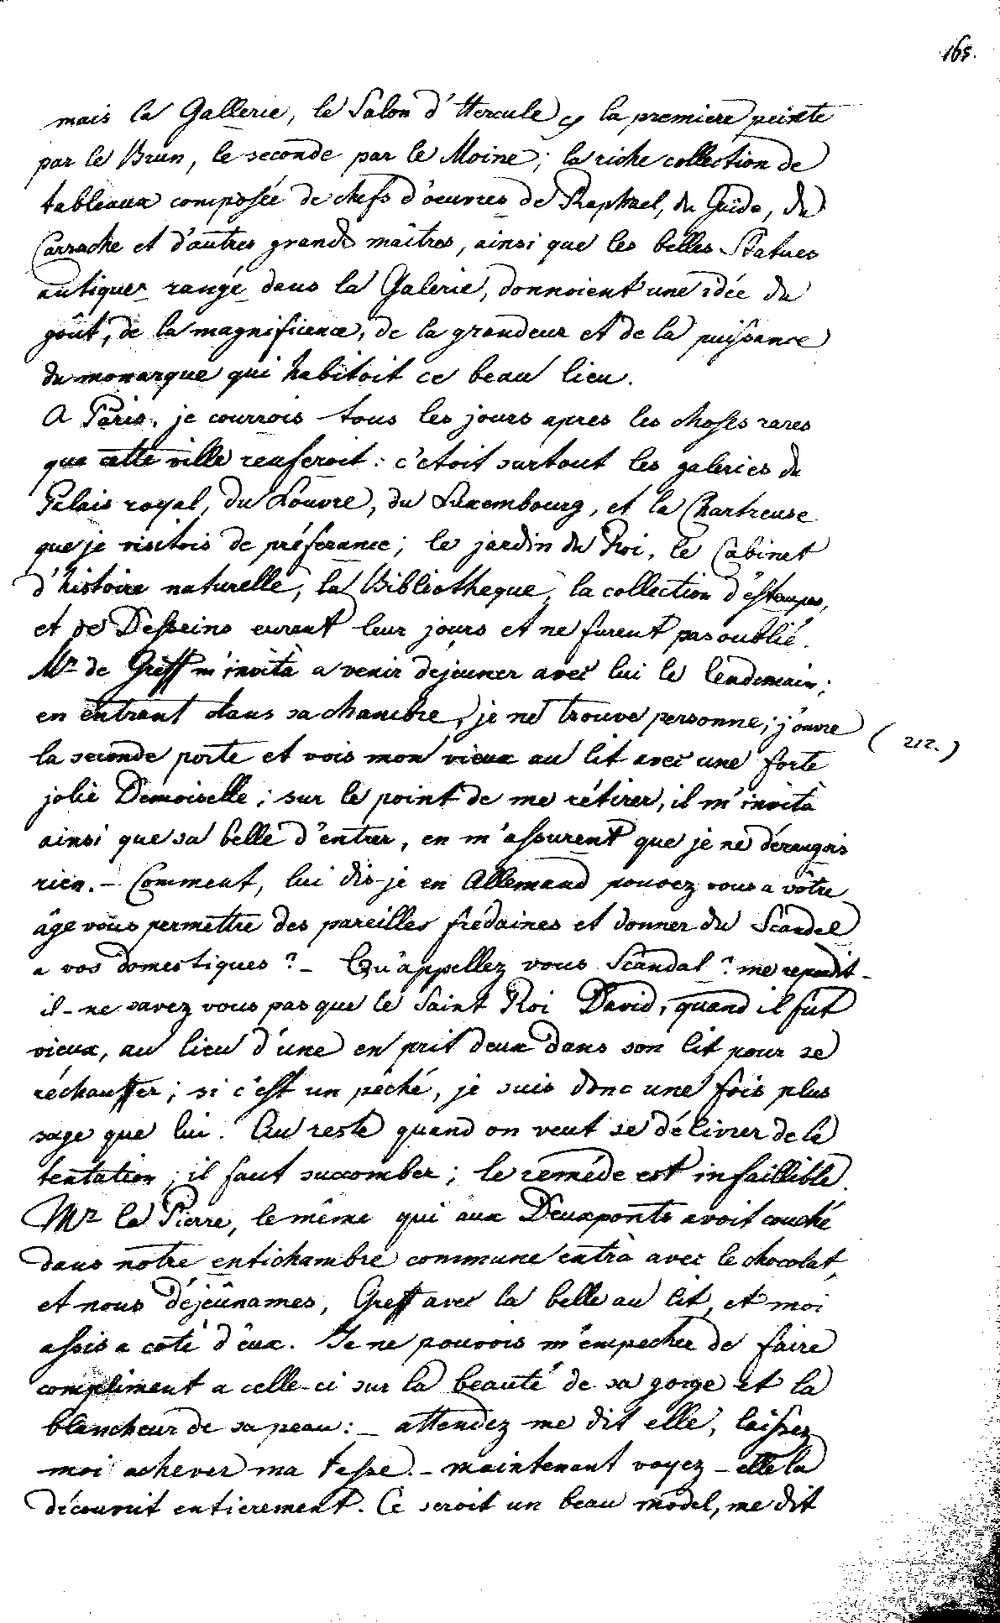 165.
mais la Gallerie, le Salon d'Hercule, la premiere peinte
par le Brun, le seconde par le Moine; la riche collection de
tableaux composée de chefs d'oeuvres de Raphael, du Guido, du
Carrache et d'autres grands maîtres, ainsi que les belles Statues
antiques rangé dans la Galerie, donnoient une idée du
goût, de la magnificence, de la grandeur et de la puissance
du monarque qui habitoit ce beau lieu.
A Paris, je courrois tous les jours apres les choses rares
que cette ville renferoit: c'etoit surtout les galeries du
Palais royal, du Louvre, du Luxembourg, et la Chartreuse
que je visitois de préferance; le jardin du Roi, le Cabinet
d'histoire naturelle, la Bibliotheque, la collection d'éstampes,
et de Desseins eurent leur jours et ne furent pas oublié.
Mr. de Greff m'invità a venir dejeuner avec lui le lendemain;
en entrant dans sa chambre, je ne trouve personne; j'ouvre
(212.)
la seconde porte et vois mon vieux au lit avec une forte
jolie Demoiselle; sur le point de me rétirer, il m'invità
ainsi que sa belle d'entrer, en m'assurent que je ne dérangois
rien. - Comment, lui dis-je en Allemand pouvez vous a vôtre
âge vous permettre des pareilles frédaines et donner du Scandel
a vos domestiques? - Qu'appellez vous Scandal? me repondit-
il - ne savez vous pas que le Saint Roi David, quand il fut
vieux, au lieu d'une en prit deux dans son lit pour se
réchauffer; si c'est un pêché, je suis donc une fois plus
sage que lui. Au reste quand on veut se délivrer de la
tentation, il faut succomber; le reméde est infaillible.
Mr. la Pierre, le même qui aux Deuxponts avoit couché
dans notre entichambre commune entrà avec le chocolat,
et nous déjeûnames, Greff avec la belle au lit, et moi
assis a coté d'eux. Je ne pouvois m'empecher de faire
compliment a celle-ci sur la beauté de sa gorge et la
blancheur de sa peau: - attendez me dit elle, laissez
moi achever ma tasse. - maintenant voyez - elle la
découvrit entierement. Ce seroit un beau model, me dit